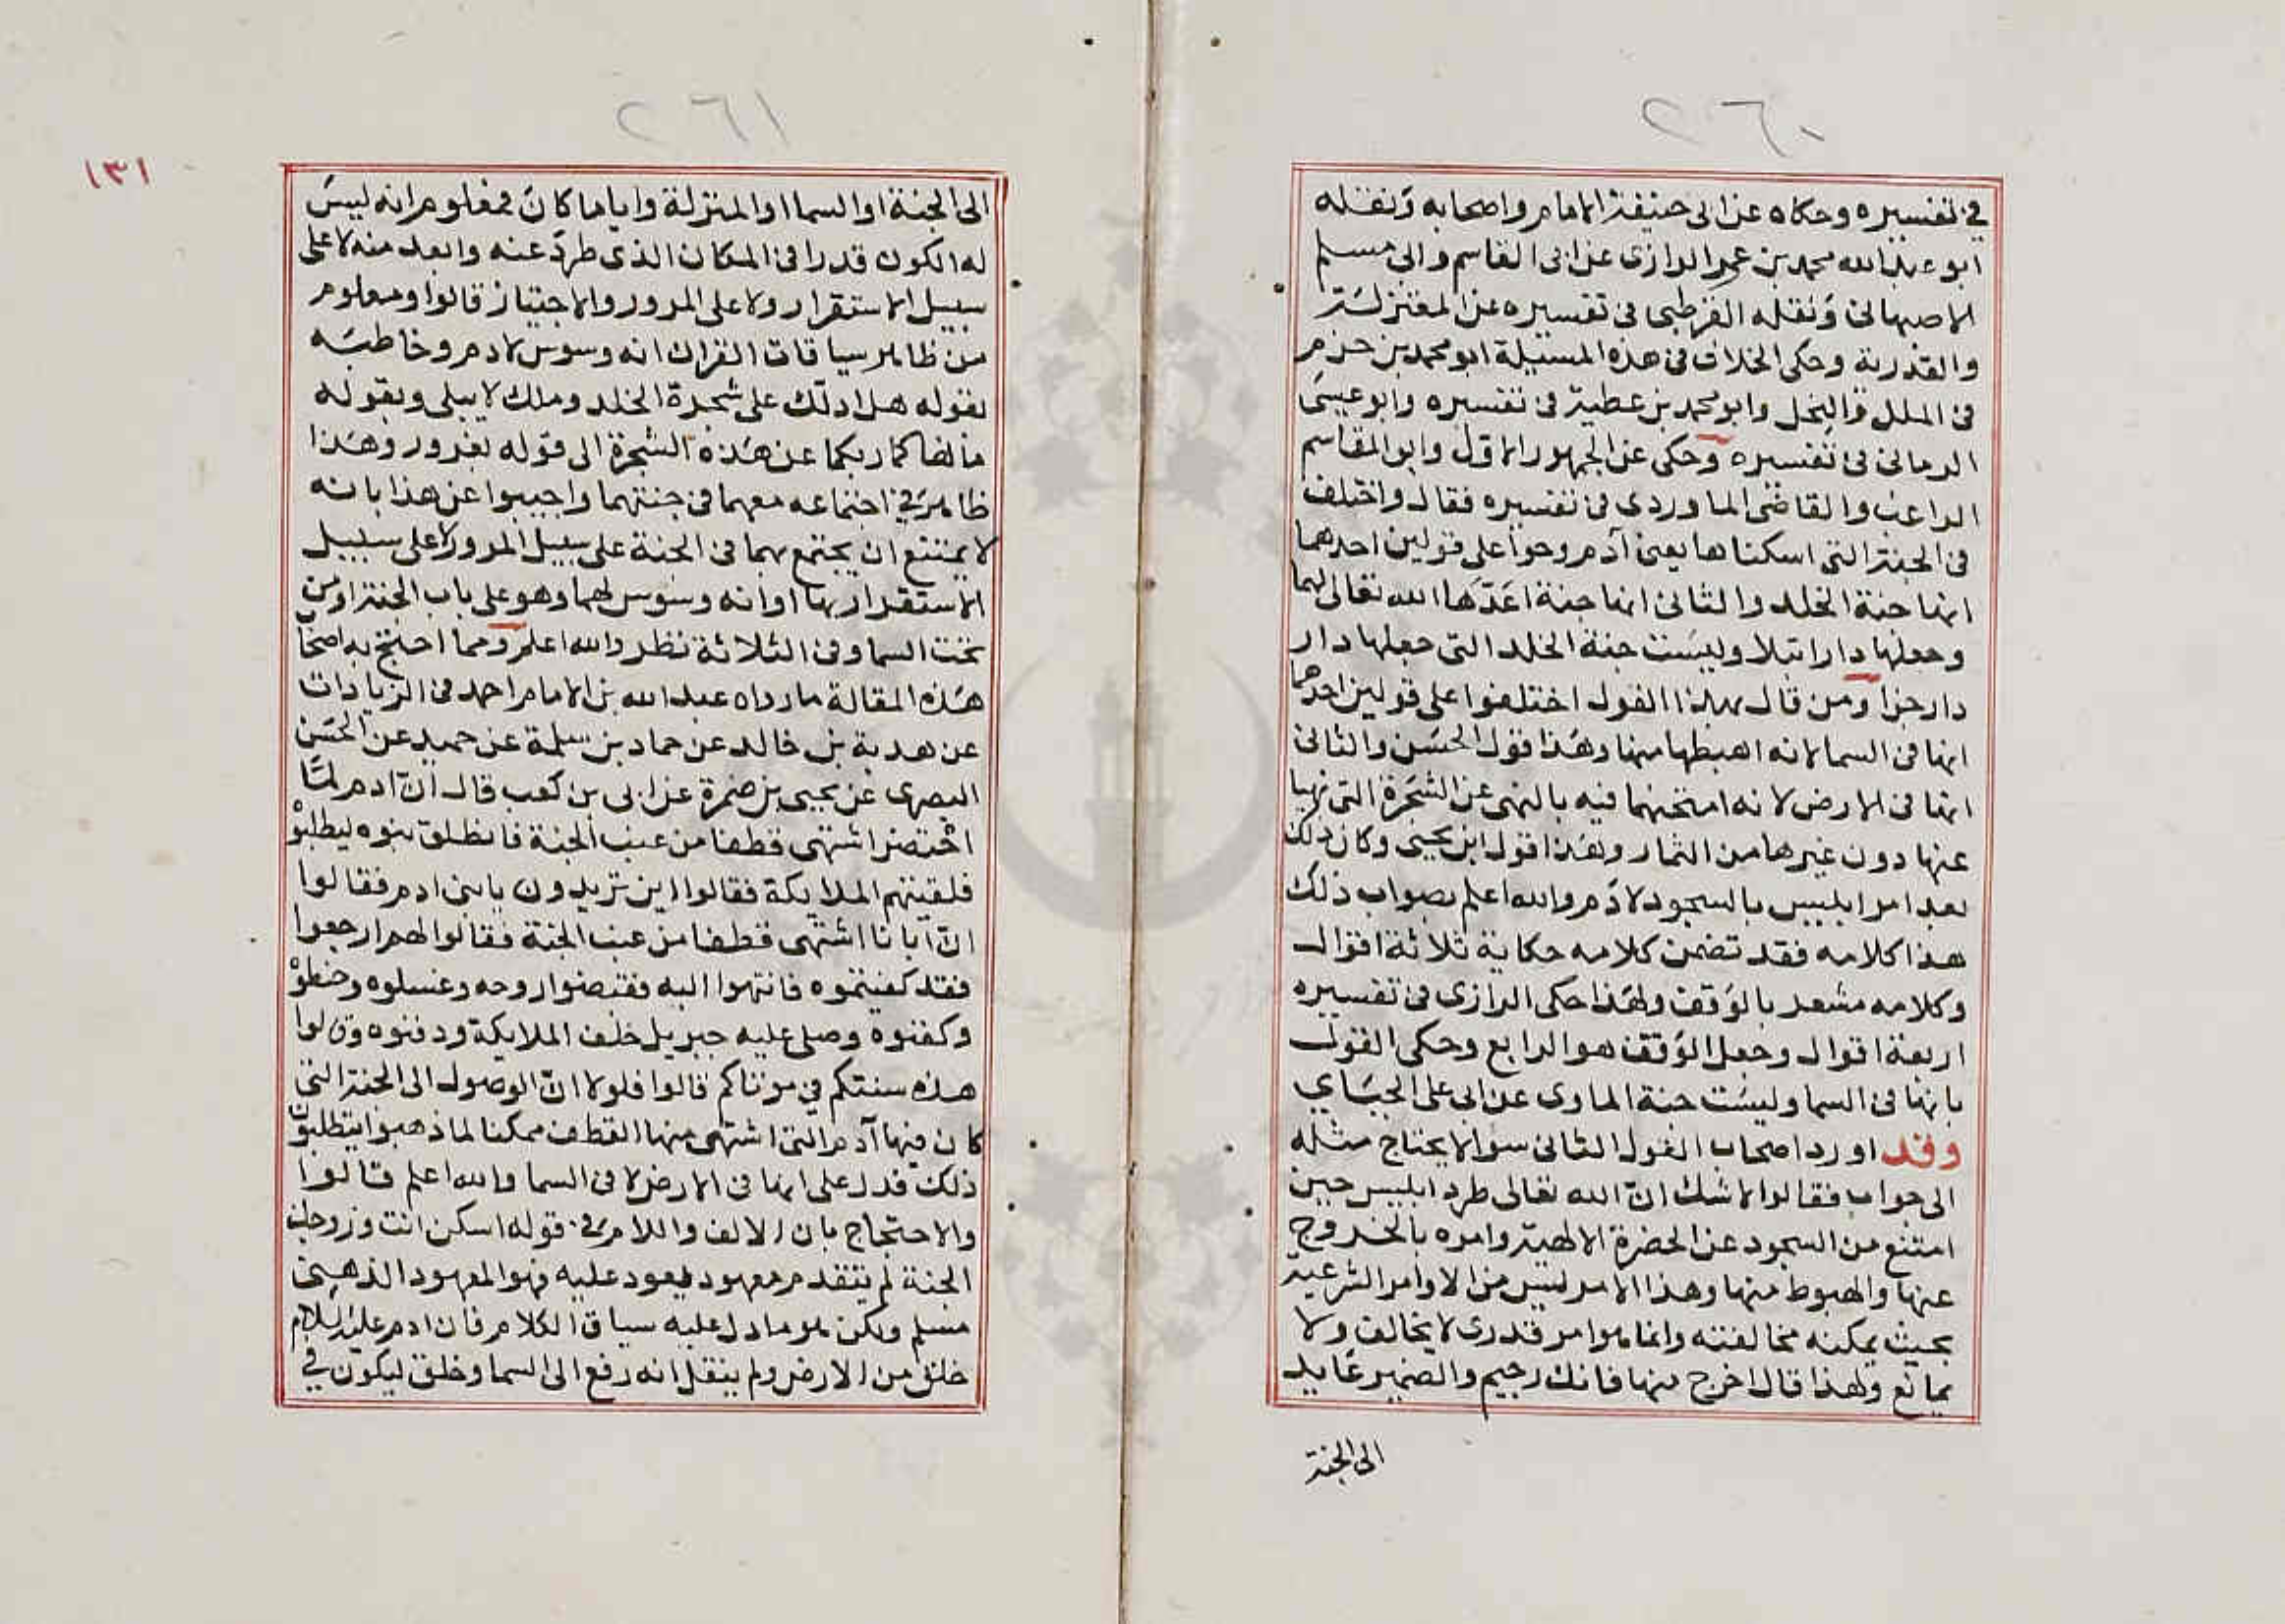 ٢٦٠
في تفسيره وحكاه عن ابى حنيفة الامام واصحابه ونقله
ابو عبد الله محمد بن عمر الرازى عن ابى القاسم وابى مسلم
الاصبهانى ونقله القرطبى فى تفسيره عن المعتزلة
والقدرية وحكى الخلاف فى هذه المسيلة ابو محمد بن حزم
فى الملل والنحل وابو محمد بن عطية فى تفسيره وابو عيسى
الرمانى فى تفسيره وحكى عن الجمهور الاول وابو القاسم
الراغب والقاضى الماوردى فى تفسيره فقال واختلف
فى الجنة التى اسكناها يعنى آدم وحوا على قولين احدهما
انها جنة الخلد والثانى انها جنة اعدّها الله تعالى لهما
وجعلها دار ابتلا وليست جنة الخلد التى جعلها دار
دار جزا ومن قال بهذا القول اختلفوا على قولين احدهما
انها فى السما لانه اهبطها منها وهذا قول الحسن والثانى
انها فى الارض لانه امتحنهما فيه بالنهى عن الشجرة التى نهيا
عنها دون غيرها من الثمار وهذا قول ابن يحيى وكان ذلك
بعد امر ابليس بالسجود لادم والله اعلم بصواب ذلك
هذا كلامه فقد تضمن كلامه حكاية ثلاثة اقوال
وكلامه مشعر بالوقف ولهذا حكى الرازى فى تفسيره
اربعة اقوال وجعل الوقف هو الرابع وحكى القول
بانها فى السما وليست جنة الماوى عن ابى على الجبّاي
وقد اورد اصحاب القول الثانى سوالا يحتاج مثله
الى جواب فقالوا لا شك انّ الله تعالى طرد ابليس حين
امتنع من السجود عن الحضرة الالهية وامره بالخروج
عنها والهبوط منها وهذا الامر ليس من الاوامر الشرعية
بحيث يمكنه مخالفته وانما هو امر قدرى لا يخالف ولا
يمانع ولهذا قال اخرج منها فانك رجيم والضمير عايد
الى الجنة
٢٦١
١٣١
الى الجنة او السما او المنزلة وايا ما كان فمعلوم انه ليس
له الكون قدرا فى المكان الذى طرد عنه وابعد منه لا على
سبيل الاستقرار ولا على المرور والاجتياز قالوا ومعلوم
من ظاهر سياقات القران انه وسوس لادم وخاطبه
بقوله هل ادلك على شجرة الخلد وملك لا يبلى وبقوله
ما نهاكما ربكما عن هذه الشجرة الى قوله بغرور وهذا
ظاهر في اجتماعه معهما فى جنتهما واجيبوا عن هذا بانه
لا يمتنع ان يجتمع بهما فى الجنة على سبيل المرور لا على سبيل
الاستقرار بها او انه وسوس لهما وهو على باب الجنة او من
تحت السما وفى الثلاثة نظر والله اعلم ومما احتج به اصحا
هذه المقالة ما رواه عبد الله بن الامام احمد فى الزيادات
عن هدبة بن خالد عن حماد بن سلمة عن حميد عن الحسن
البصرى عن يحيى بن ضمرة عن ابى بن كعب قال انّ ادم لمّا
احتضر اشتهى قطفا من عنب الجنة فانطلق بنوه ليطلبوْ
فلقيتهم الملايكة فقالوا اين تريدون يا بنى ادم فقالوا
انّ ابانا اشتهى قطفا من عنب الجنة فقالوا لهم ارجعوا
فقد كفيتموه فانتهوا اليه فقبضوا روحه وغسلوه وحنطوْ
وكفنوه وصلى عليه جبريل خلف الملايكة ودفنوه وقالوا
هذه سنتكم في موتاكم قالوا فلولا انّ الوصول الى الجنة التى
كان فيها آدم التى اشتهى منها القطف ممكنا لما ذهبوا يتطلبون
ذلك فدل على انها فى الارض لا فى السما والله اعلم قالوا
والاحتجاج بان الالف واللام فى قوله اسكن انت وزوجك
الجنة لم يتقدم معهود يعود عليه فهو المعهود الذهنى
مسلم ولكن هو ما دل عليه سياق الكلام فان ادم عليه السلام
خلق من الارض ولم ينقل انه رفع الى السما وخلق ليكون في